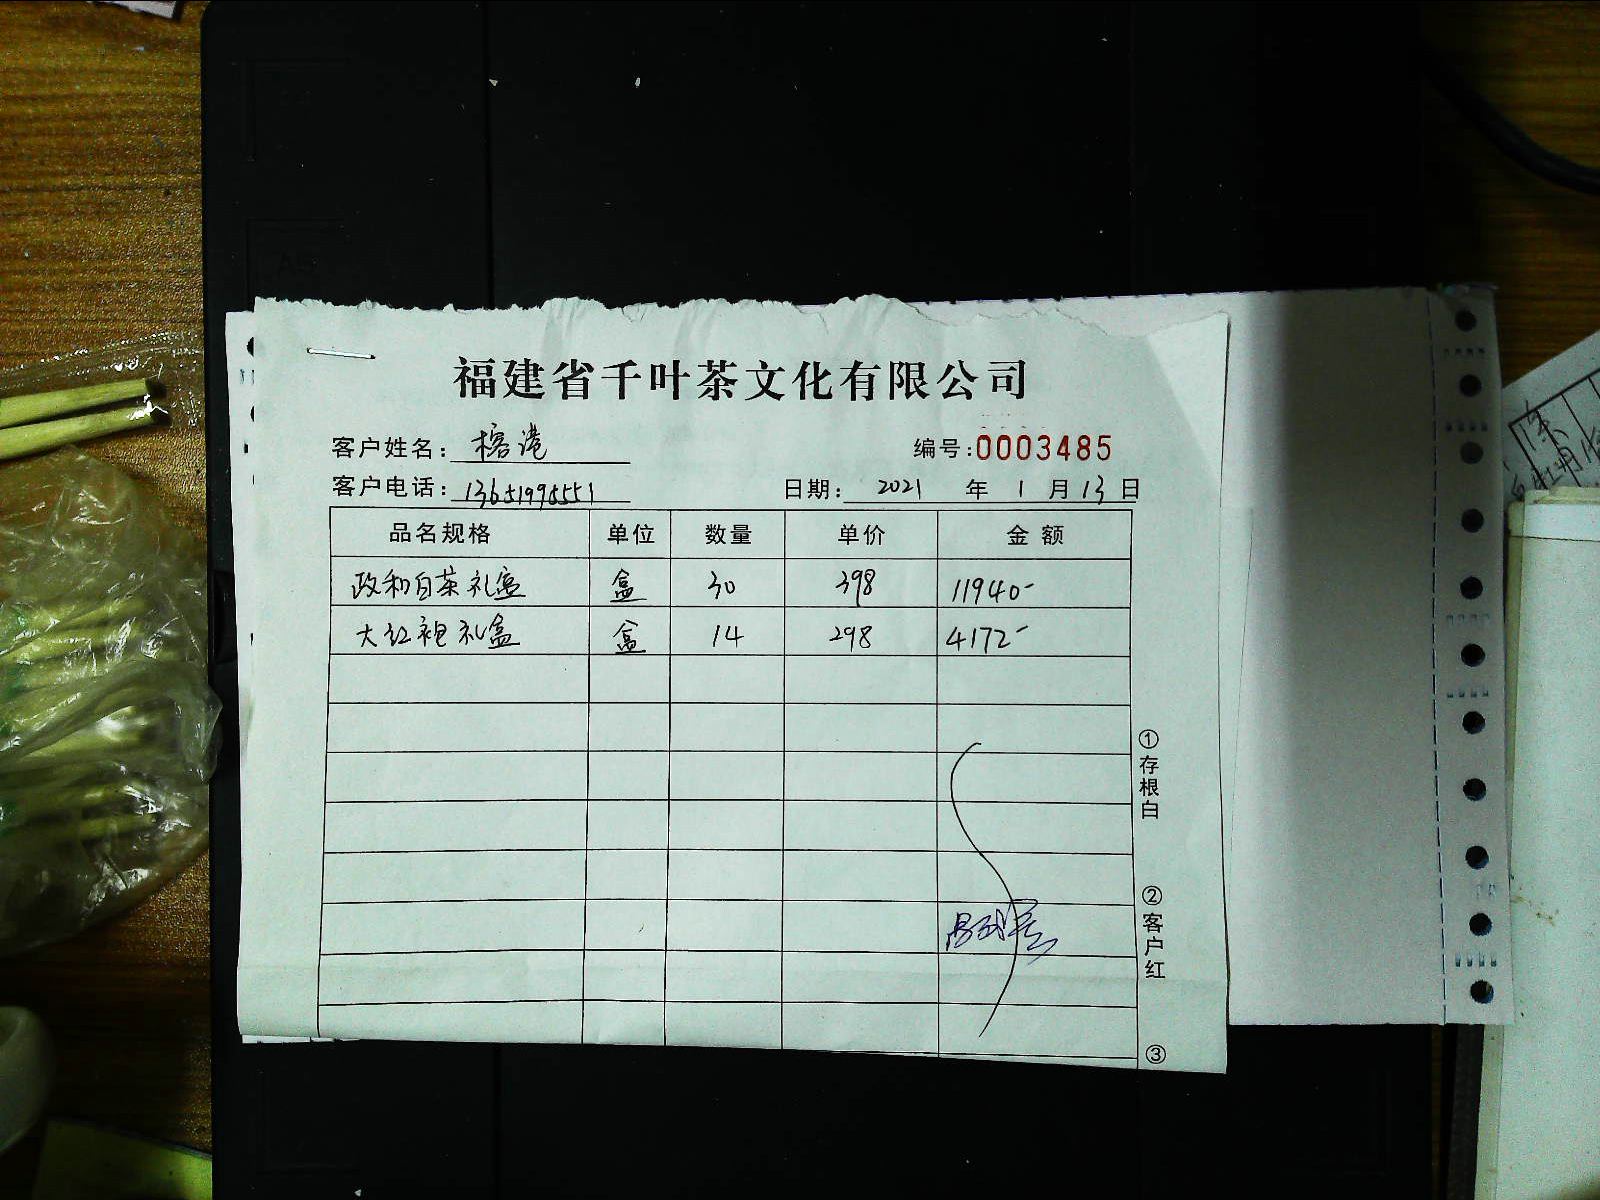 福建省千叶茶文化有限公司
客户姓名: 榕港 编号:0003485
客户电话: 13651995551 日期: 2021 年 1 月 13 日
品名规格 单位 数量 单价 金额
政和白茶礼盒 盒 30 398 11940-
大红袍礼盒 盒 14 298 4172-
①存根白
②客户红
③
A5